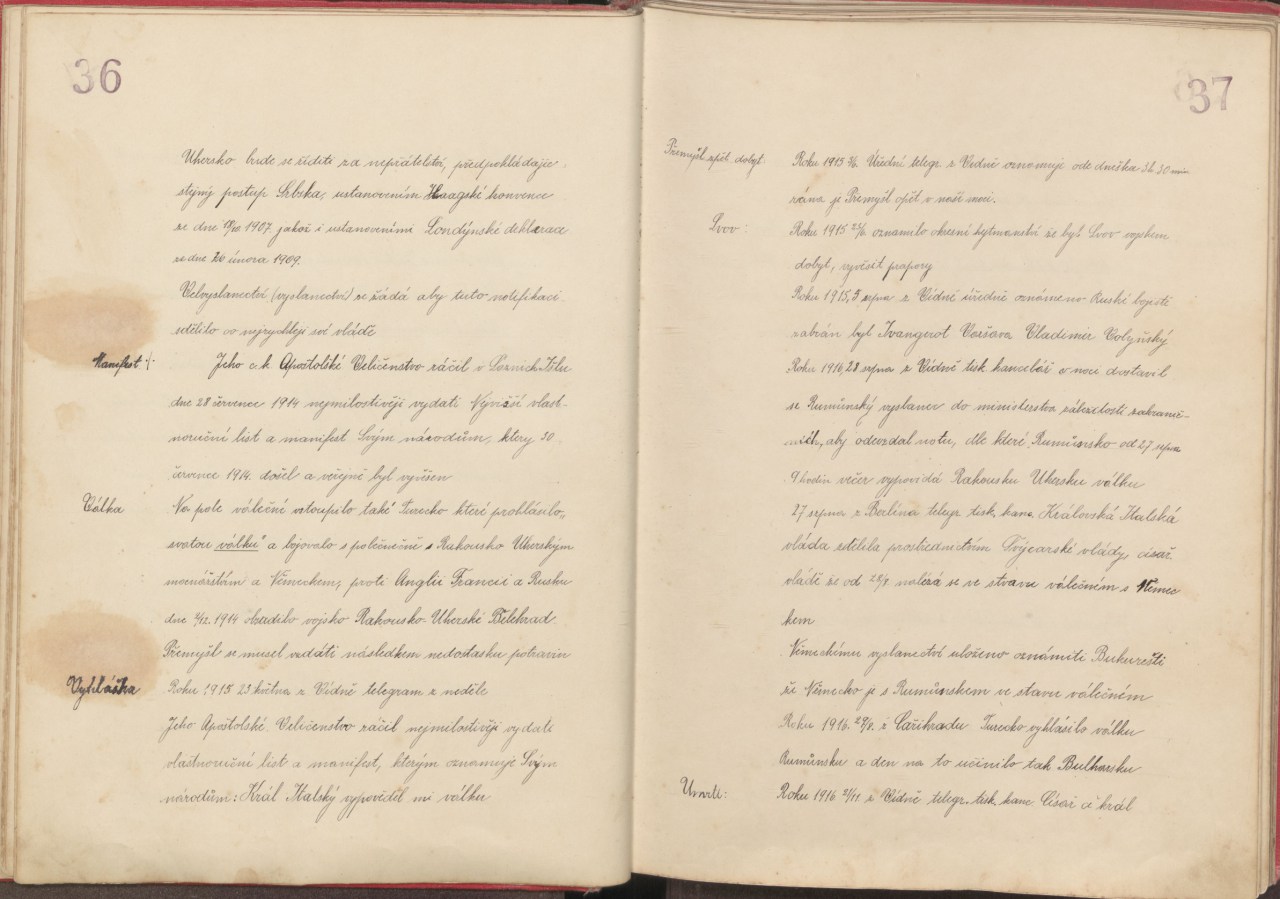 36
Uhersko bude se říditi za nepřátelství, předpokládajíc
stejný postup Srbska, ustanovením Haagské konvence
ze dne 18/10 1907 jakož i ustanoveními Londýnské deklarace
ze dne 26 února 1909.
Velvyslanectví (vyslanectví) se žádá aby tuto notifikaci
sdělilo co nejrychleji své vládě
Manifest :/: Jeho c. k. Apoštolské Veličenstvo ráčil v Lázních Išlu
dne 28 července 1914 nejmilostivěji vydati Nejvyšší vlast-
noruční list a manifest Svým národům, který 30
července 1914. došel a veřejně byl vyvěšen
Válka Na pole válečné vstoupilo také Turecko které prohlásilo
"svatou válku" a bojovalo s polečníčně s Rakousko Uherským
mocnářstám a Německem, proti Anglii Francii a Rusku
dne 2/12 1914 obsadilo vojsko Rakousko-Uherské Bělehrad
Přemyšl se musel vzdáti následkem nedostasku potravin
Vyhláška Roku 1915 23 května z Vídně telegram z neděle
Jeho Apoštolské Veličenstvo ráčil nejmilostivěji vydati
vlastnoruční list a manifest, kterým oznamuje Svým
národům: Král Italský vypověděl mi válku
37
Přemyšl zpět dobyt: Roku 1915 3/6 Úřední telegr. z Vídně oznamuje ode dneška 3 h 30 min
ráno je Přemyšl opět v naší moci.
Lvov: Roku 1915 23/6 oznámilo okresní hejtmanství že byl Lvov vojskem
dobyt, vyvěsit prapory
Roku 1915, 5 srpna z Vídně úředně oznámeno Ruské bojiště
zabrán byl Ivangorot Varšava Vladimir Volyňský
Roku 1916, 28 srpna z Vídně tisk kancelář v noci dostavil
se Rumůnský vyslanec do ministerstva záležitostí zahranič-
ních, aby odevzdal notu, dle které Rumůnsko od 27 srpna
9 hodin večer vypovídá Rakousku Uhersku válku
27 srpna z Berlína telegr. tisk. kanc. Královská Italská
vláda sdělila prostřednictvím Švýcarské vlády, císař.
vládě že od 28/8 nalézá se ve stavu válečném s Němec
kem
Německému vyslanectví uloženo oznámiti Bukurešti
že Německo je s Rumůnskem ve stavu válečném
Roku 1916. 29/8. z Cařihradu Turecko vyhlásilo válku
Rumůnsku a den na to učinilo tak Bulharsko
Úmrtí: Roku 1916 21/11 z Vídně telegr. tisk. kanc. Císař a král